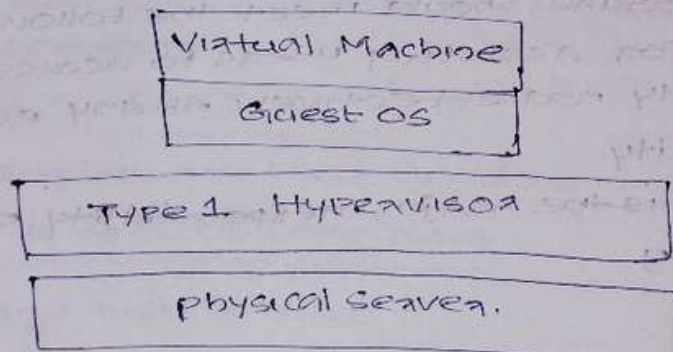 Virtual Machine
Guest OS
Type 1 Hypervisor
physical Server.